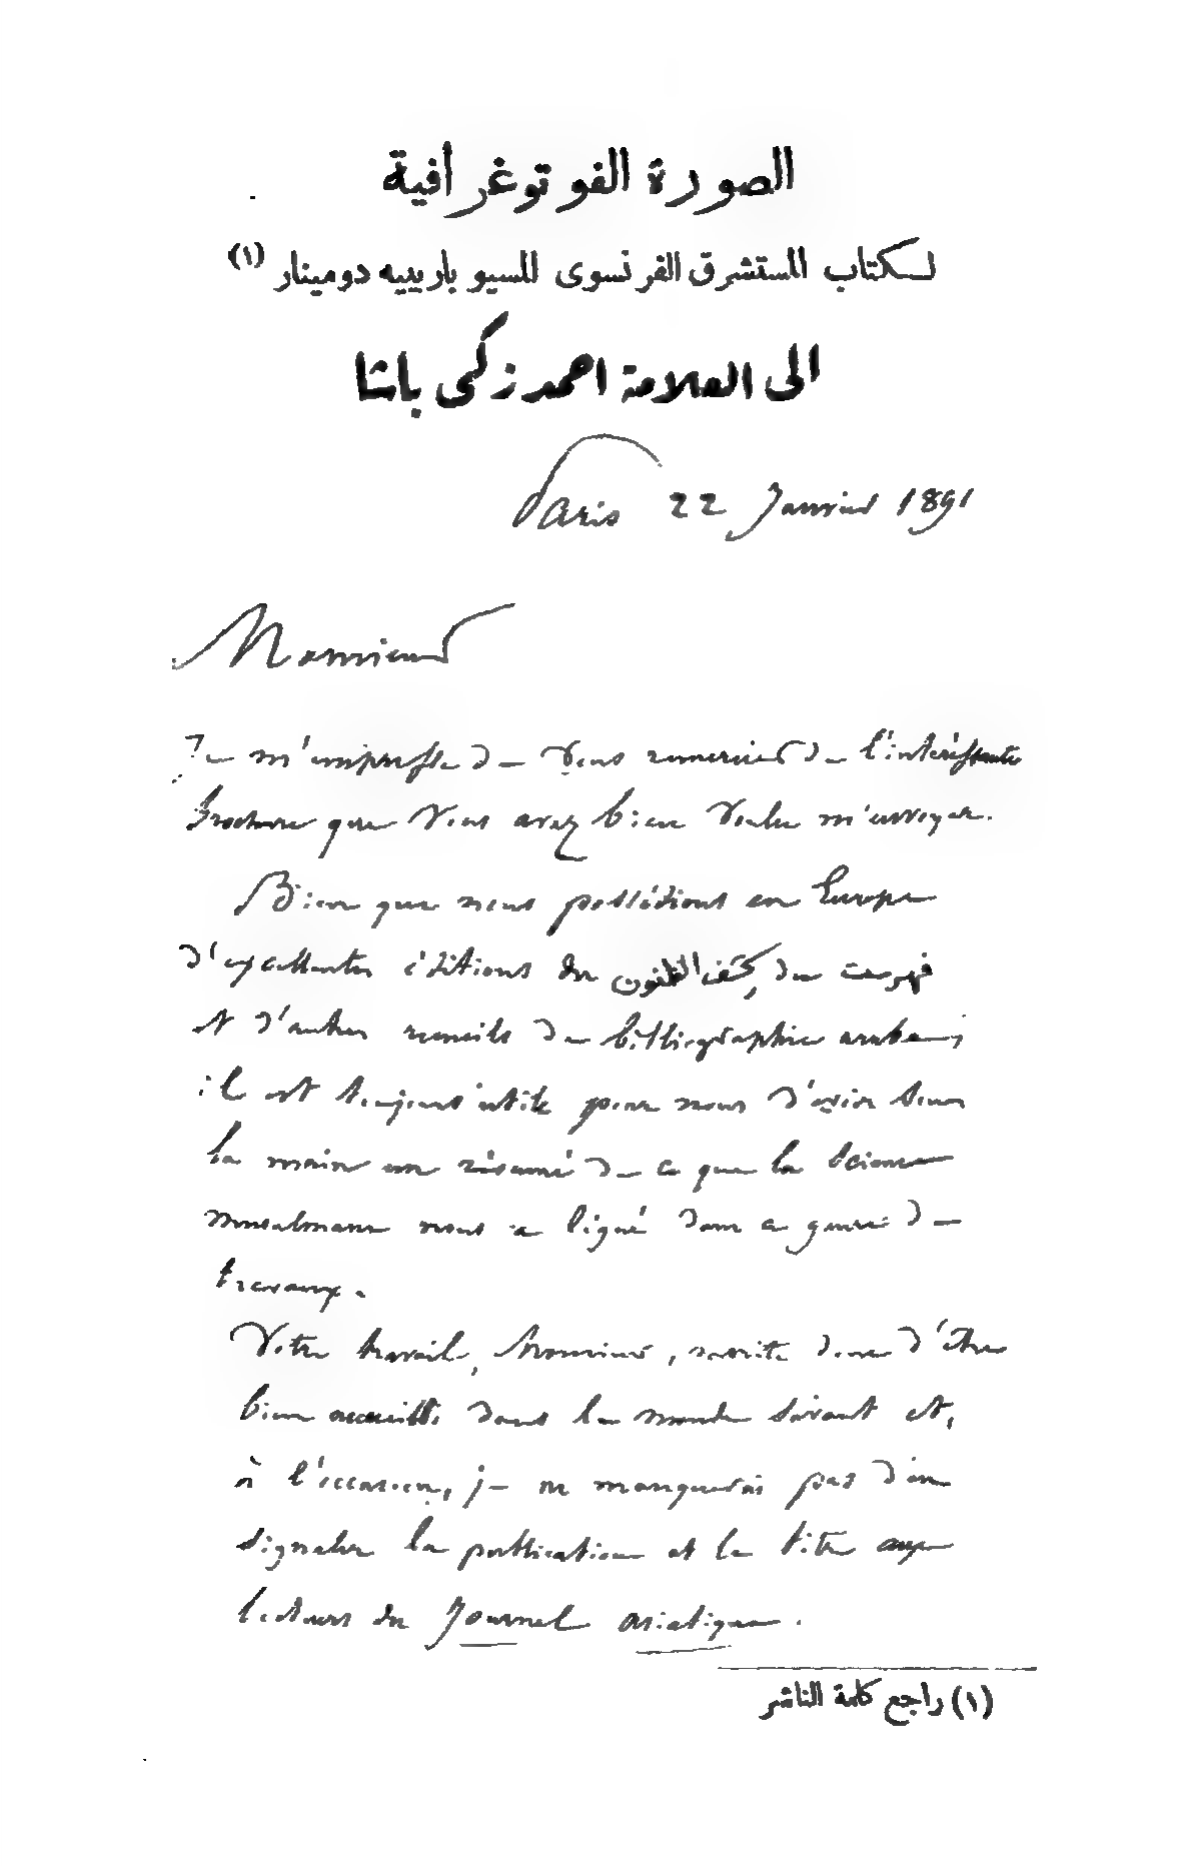 الصورة الفوتوغرافية
لكتاب المستشرق الفرنسوى المسيو باربييه دومينار (١)
الى العلامة احمد زكى باشا
Paris 22 Janvier 1891
Monsieur
Je m'empresse de vous remercier de l'intéressante
brochure que vous avez bien voulu m'envoyer.
Bien que nous possédions en Europe
d'excellentes éditions du كشف الظنون, du فهرست
et d'autres recueils de bibliographie arabe,
il est toujours utile pour nous d'avoir sous
la main un résumé de ce que la science
musulmane nous a légué dans ce genre de
travaux.
Votre travail, Monsieur, mérite donc d'être
bien accueilli dans le monde savant et,
à l'occasion, je ne manquerai pas d'en
signaler la publication et le titre aux
lecteurs du Journal asiatique.
(١) راجع كلمة الناشر